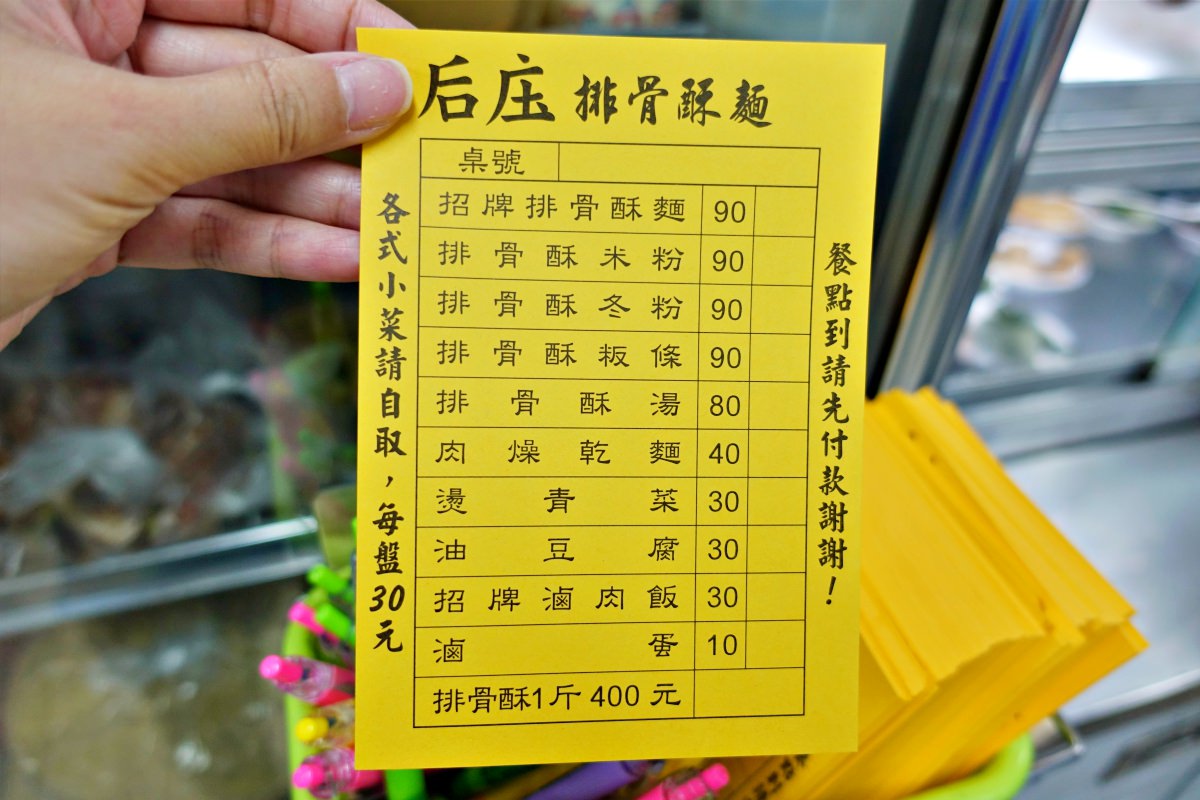 后庄 排骨酥麵
桌號
招牌排骨酥麵 90
排骨酥米粉 90
排骨酥冬粉 90
排骨酥粄條 90
排骨酥湯 80
肉燥乾麵 40
燙青菜 30
油豆腐 30
招牌滷肉飯 30
滷蛋 10
排骨酥1斤400元
各式小菜請自取，每盤30元
餐點到請先付款謝謝！